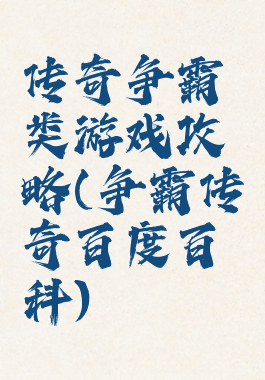 传奇争霸
类游戏攻
略(争霸传
奇百度百
科)